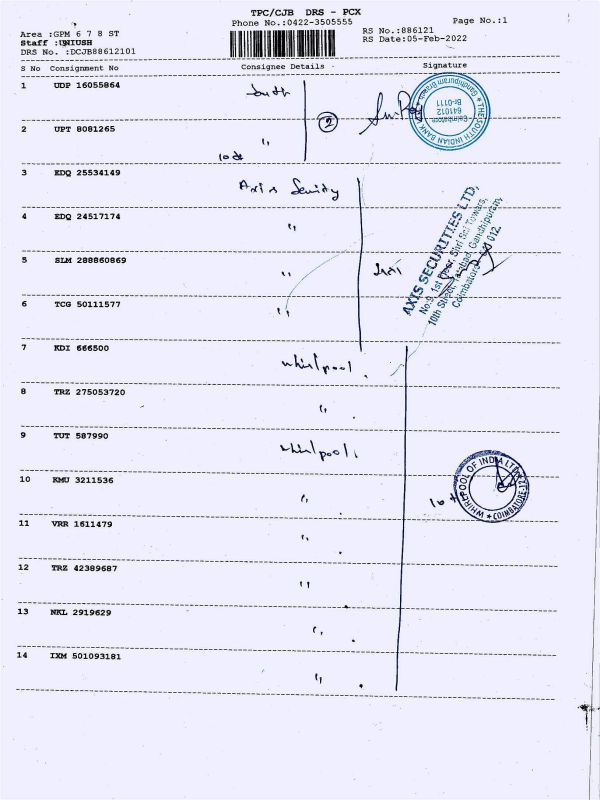 TPC/CJB DRS - PCX
Phone No.:0422-3505555
Page No.:1
Area :GPM 6 7 8 ST
Staff :UNIUSH
DRS No. :DCJB88612101
RS No.:886121
RS Date:05-Feb-2022
S No Consignment No Consignee Details Signature
1 UDP 16055864 South
2 UPT 8081265 "
2
THE SOUTH INDIAN BANK
Coimbatore
641012
Br-0111
Gandhipuram Branch
3 EDQ 25534149 Axis Security
4 EDQ 24517174 "
5 SLM 288860869 "
6 TCG 50111577 "
AXIS SECURITIES LTD,
No:9, 1st Floor, Siri Towers,
10th Street, Gandhipuram,
Coimbatore 012.
7 KDI 666500 whirlpool
8 TRZ 275053720 "
9 TUT 587990 whirlpool
10 KMU 3211536 "
WHIRLPOOL OF INDIA LTD
COIMBATORE-12
11 VRR 1611479 "
12 TRZ 42389687 "
13 NKL 2919629 "
14 IXM 501093181 "